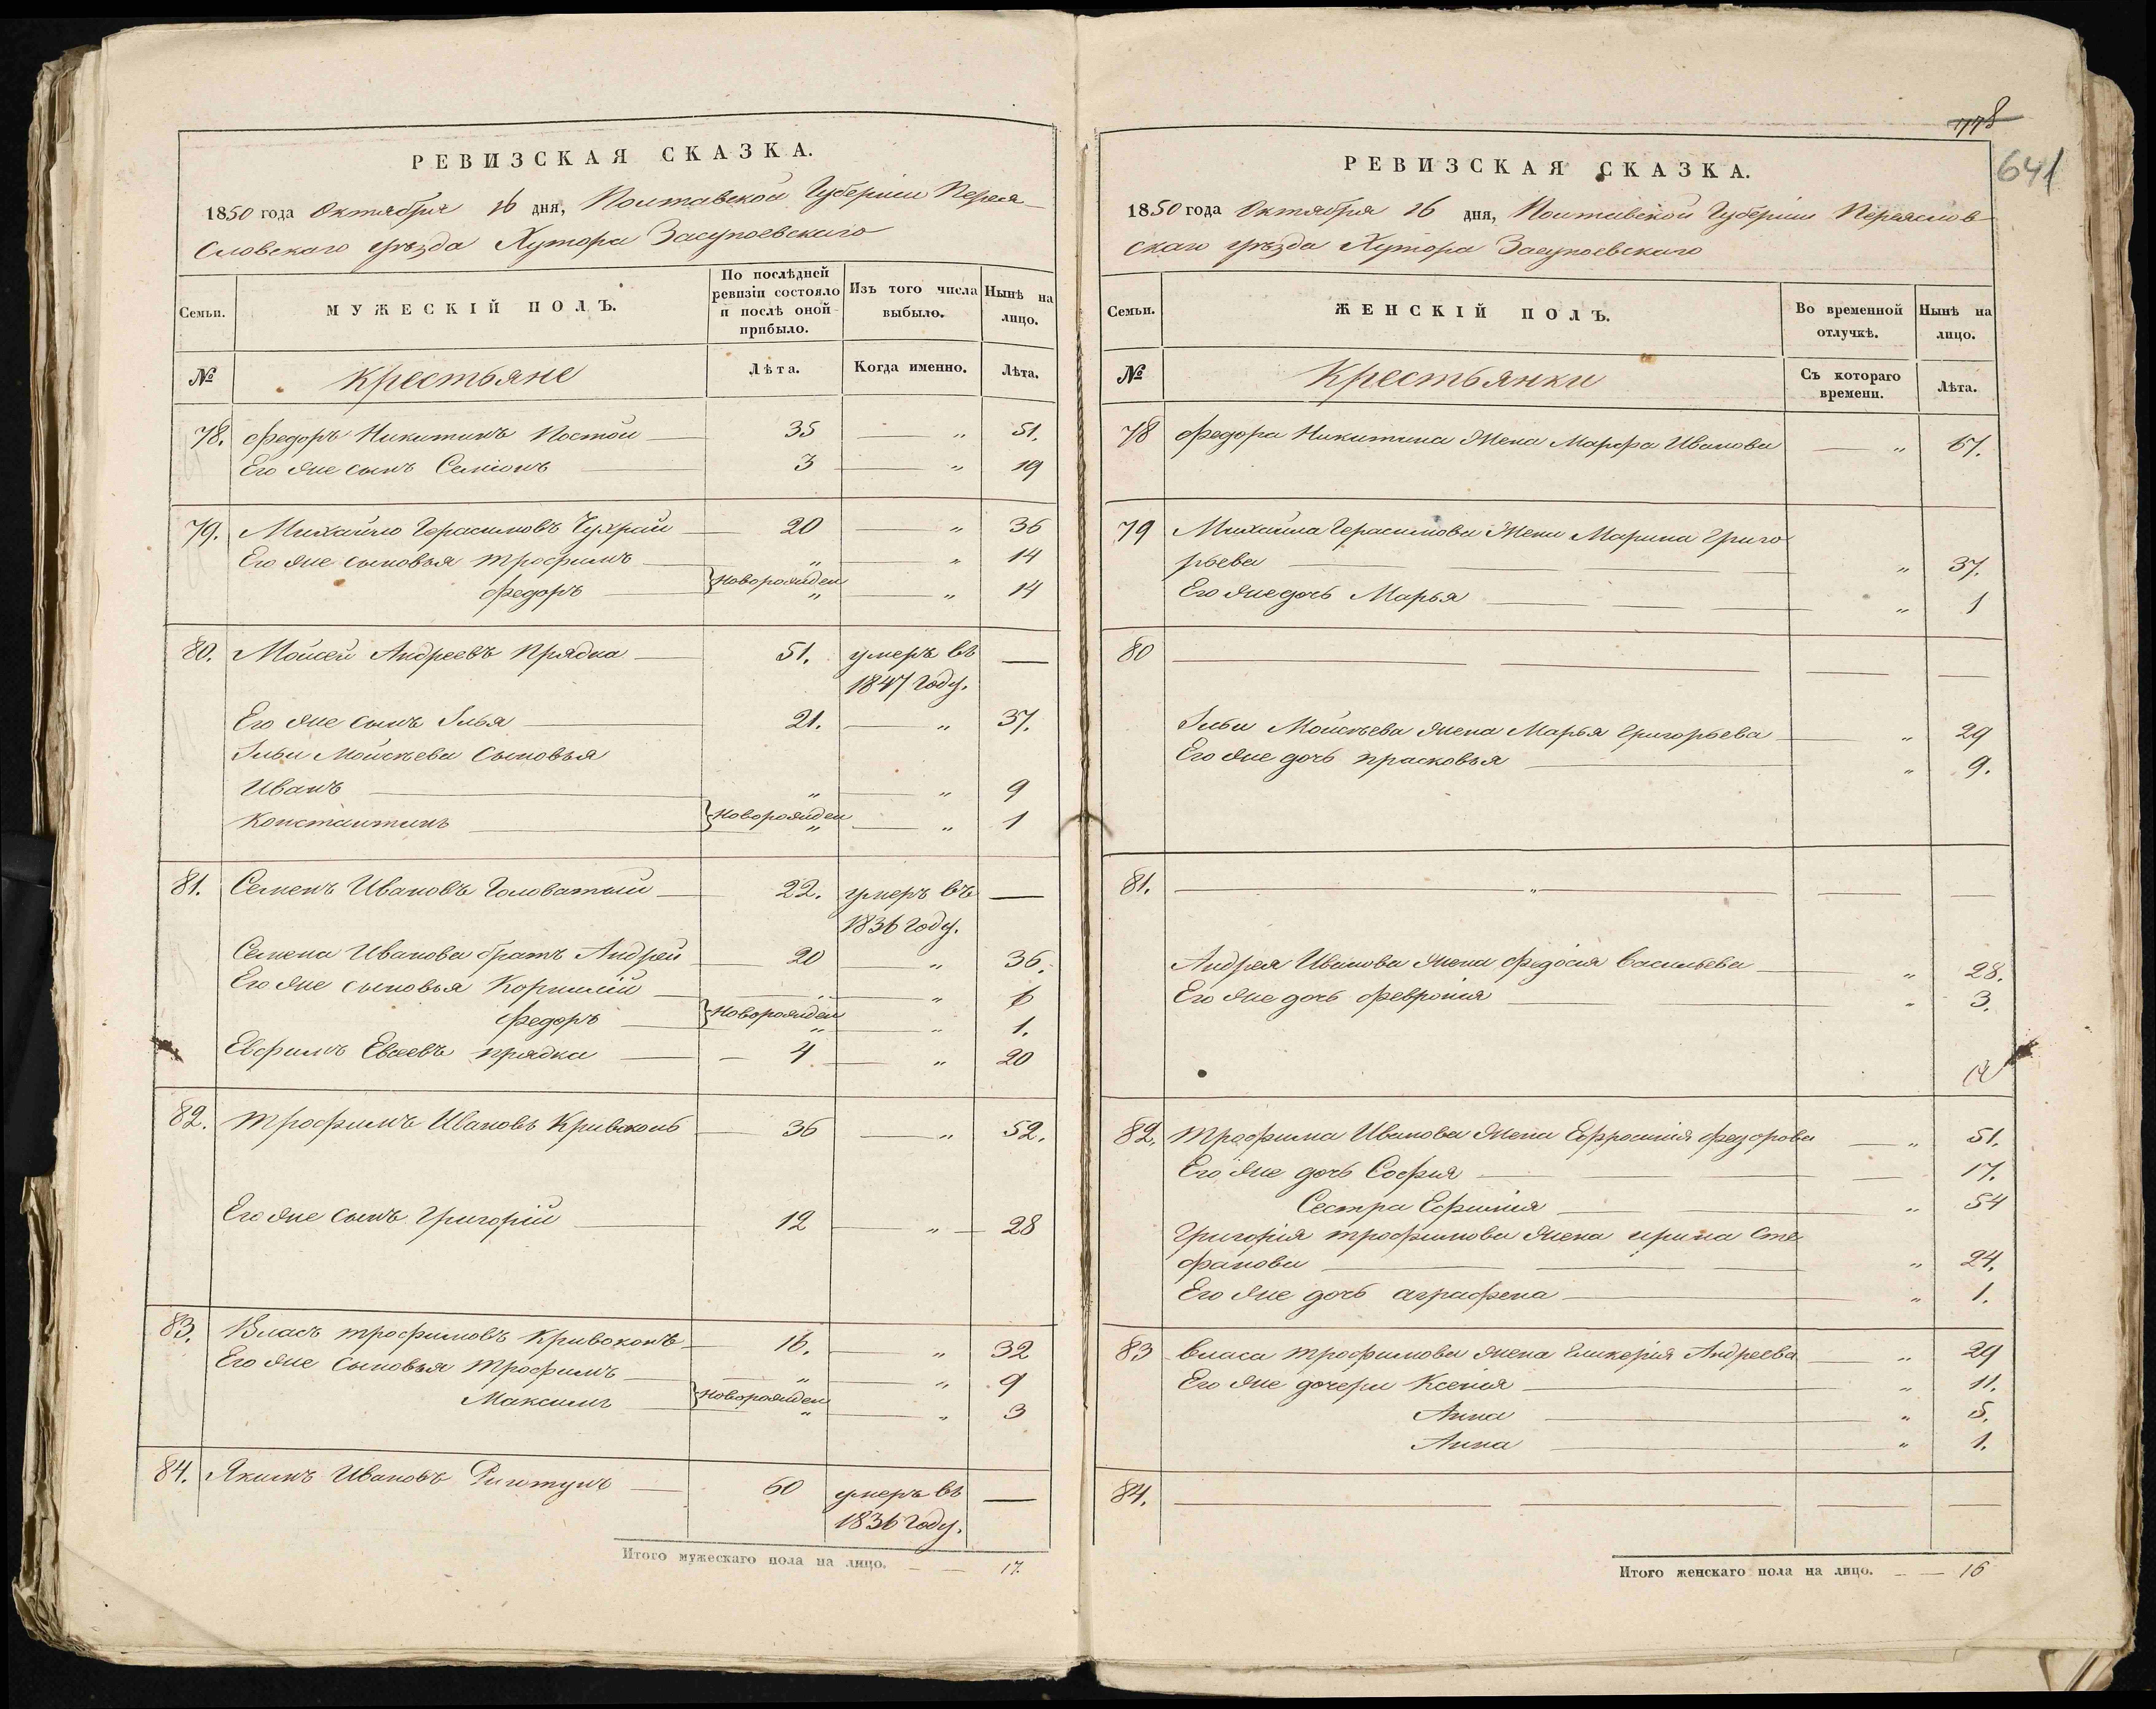 РЕВИЗСКАЯ СКАЗКА.
1850 года Октября 16 дня, Полтавской Губерніи Перея
словскаго уѣзда Хутора Засупоевскаго
Семьи. МУЖЕСКІЙ ПОЛЪ. По послѣдней ревизіи состояло и послѣ оной прибыло. Изъ того числа выбыло. Нынѣ на лицо.
№ Крестьяне Лѣта. Когда именно. Лѣта.
78. Федоръ Никитинъ Постой 35 „ 51.
Его же сынъ Семіонъ 3 „ 19
79. Михайло Герасимовъ Чухрай 20 „ 36
Его же сыновья Трофимъ „ „ 14
Федоръ новорожден „ „ 14
80. Мойсей Андреевъ Прядка 51. умеръ въ —
1847 году.
Его же сынъ Илья 21. „ 37.
Ильи Мойсѣева сыновья
Иванъ „ „ 9
Константинъ новорожден „ „ 1
81. Семенъ Ивановъ Головатый 22. умеръ въ —
1836 году.
Семена Иванова братъ Андрей 20 „ 36.
Его же сыновья Корнилій „ „ 6
Федоръ новорожден „ „ 1.
Евфимъ Евсеевъ прядка 4 „ 20
82. Трофимъ Ивановъ Кривоконь 36 „ 52.
Его же сынъ Григорій 12 „ 28
83. Власъ Трофимовъ Кривоконь 16. „ 32
Его же сыновья Трофимъ „ „ 9
Максимъ новорожден „ „ 3
84. Якимъ Ивановъ 60 умеръ въ —
1836 году.
Итого мужескаго пола на лицо. — — 17.
778
641
РЕВИЗСКАЯ СКАЗКА.
1850 года Октября 16 дня, Полтавской Губерніи Переяслов
скаго уѣзда Хутора Засупоевскаго
Семьи. ЖЕНСКІЙ ПОЛЪ. Во временной отлучкѣ. Нынѣ на лицо.
№ Крестьянки Съ котораго времени. Лѣта.
78 Федора Никитина жена Марфа Иванова „ 67.
79 Михайла Герасимова жена Марина Григо
рьева „ 37.
Его же дочь Марья „ 1
80 — — —
Ильи Мойсѣева жена Марья Григорьева „ 29
Его же дочь прасковья „ 9.
81. „ — —
Андрея Иванова жена Федосія Васильева „ 28.
Его же дочь Февронія „ 3.
82. Трофима Иванова жена Ефросинія Федорова „ 51.
Его же дочь Софія — 17.
Сестра Ефимія „ 54
Григорія трофимова жена ирина Сте
фанова „ 24.
Его же дочь аграфена „ 1.
83 Власа Трофимова жена Гликерія Андреева „ 29
Его же дочери Ксенія „ 11.
Анна „ 5.
Анна „ 1.
84. — — —
Итого женскаго пола на лицо. — — 16